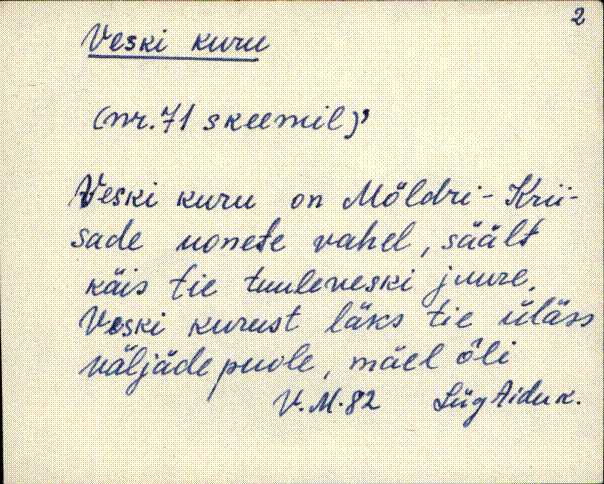 2
Veski kuru
(nr. 71 skeemil)
Veski kuru on Möldri-Krii-
sade uonete vahel, säält
käis tie tuuleveski juure.
Veski kurust läks tie üläss
väljäde puole, mäel õli
V.M. 82 Lüg Aidu k.